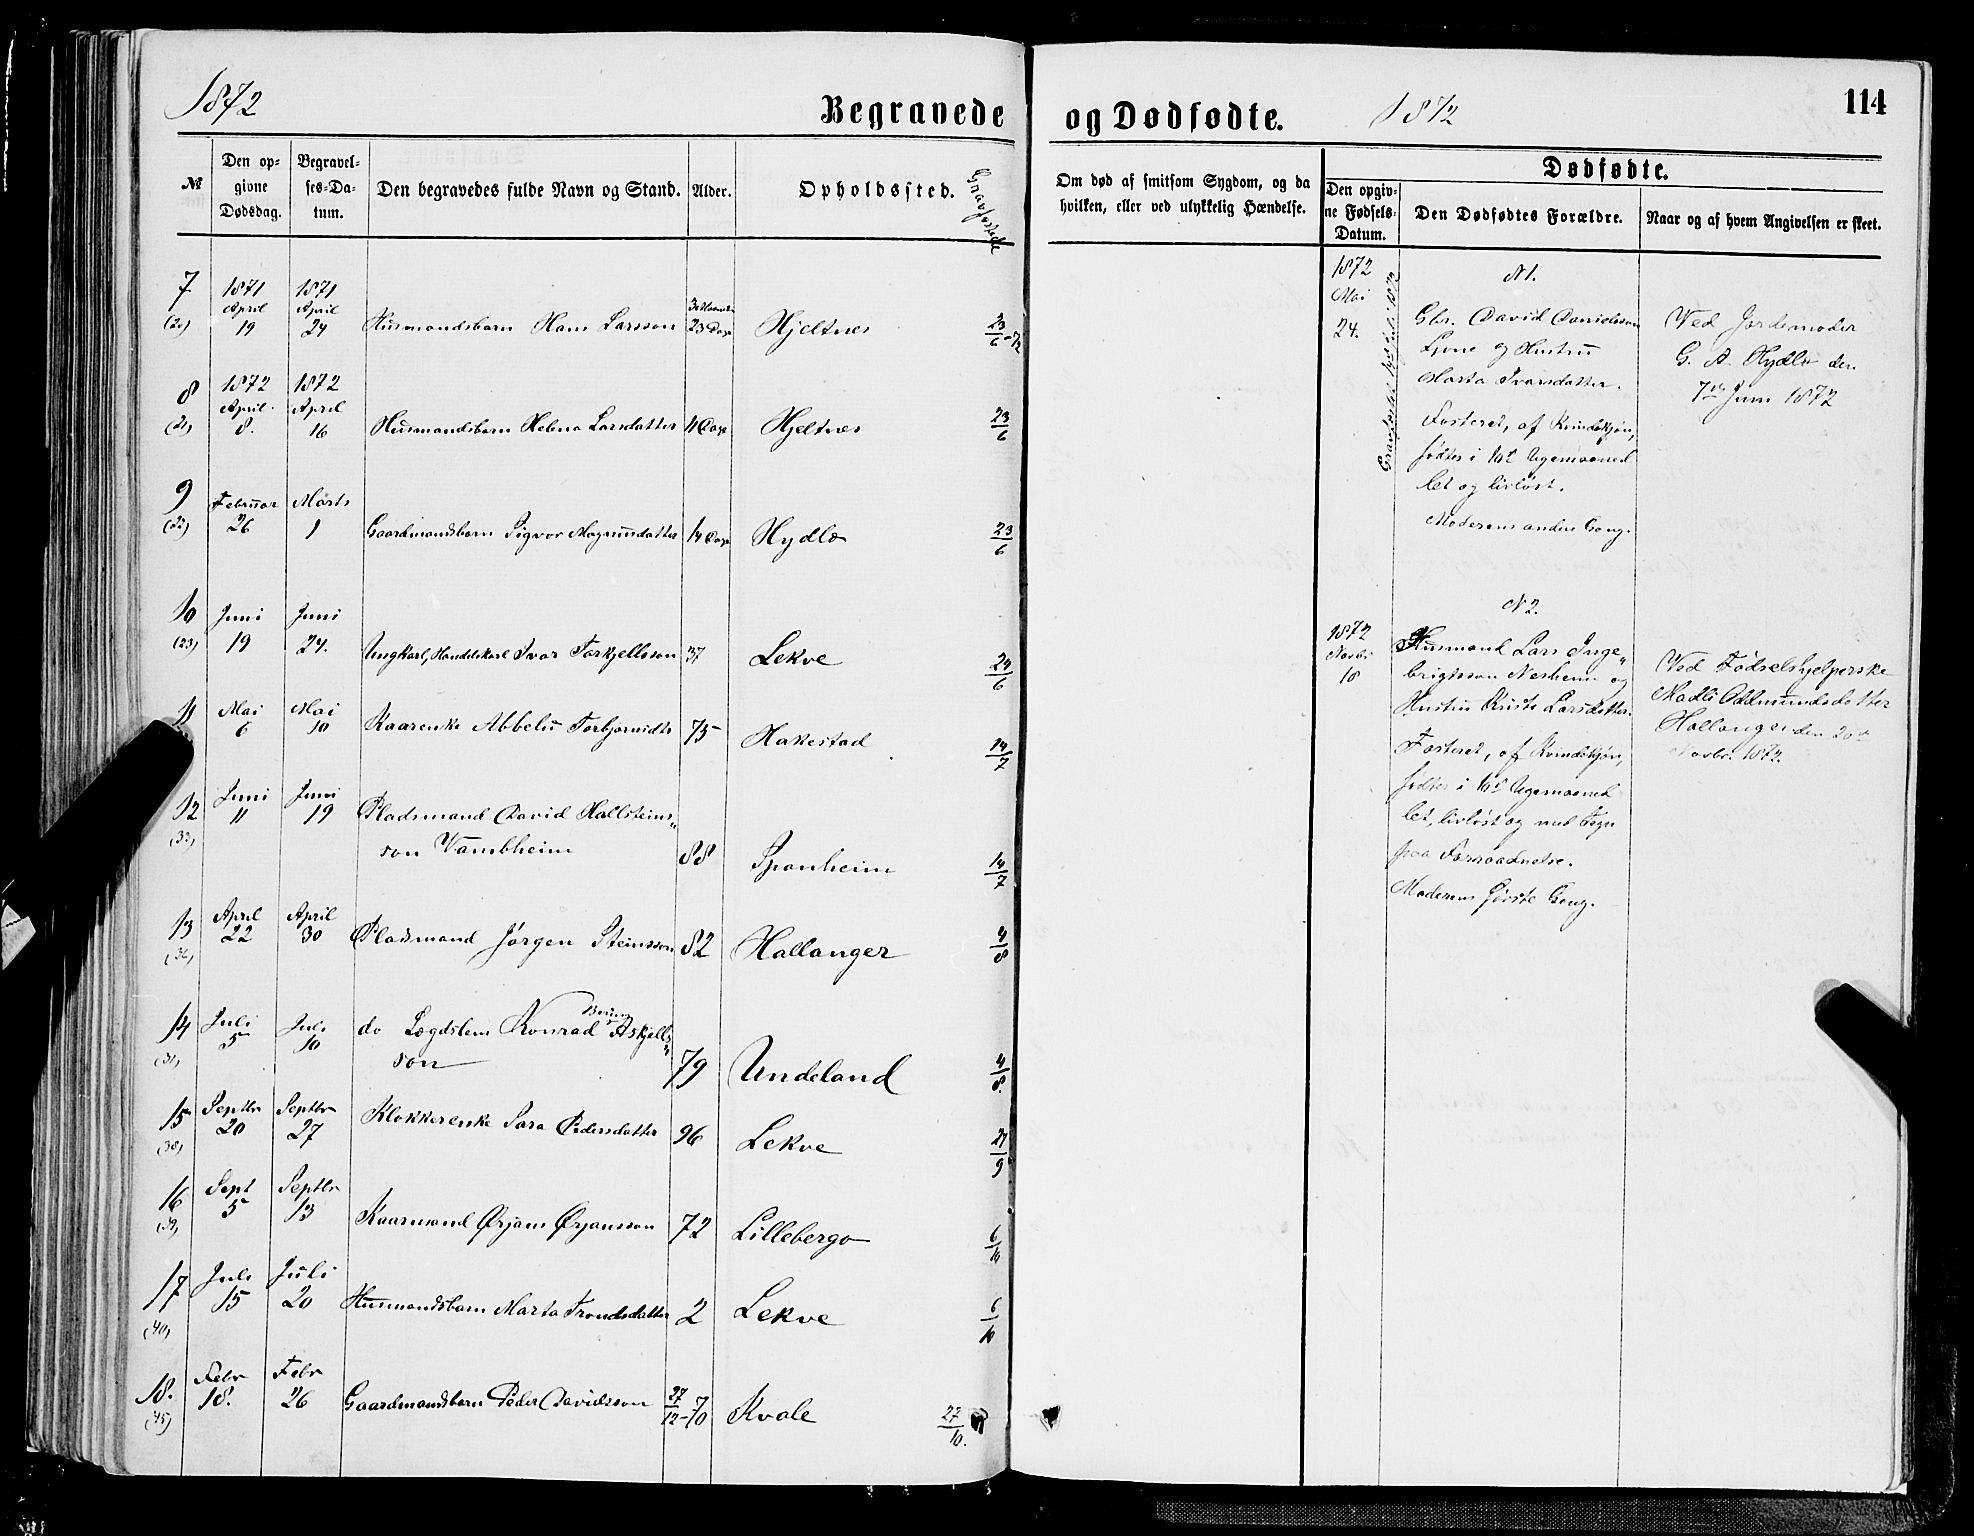 1872
Begravede og Dødfødte.
1872
114
№
Den opgivne Dødsdag.
Begravelses-Datum.
Den begravedes fulde Navn og Stand.
Alder.
Opholdssted.
Gravfæstede
Om død af smitsom Sygdom, og da hvilken, eller ved ulykkelig Hændelse.
Dødfødte.
Den opgivne Fødsels-Datum.
Den Dødfødtes Forældre.
Naar og af hvem Angivelsen er skeet.
7 (20) 1871 April 19 1871 April 24 Husmandsbarn Hans Larsson 23 Dage Hjeltnes 23/6-72
8 (21) 1872 April 8. 1872 April 16 Husmandsbarn Helena Larsdatter 11 Dage Hjeltnes 23/6
9 (22) Februar 26 Marts 1 Gaardmandsbarn Sigvor Magnusdatter 14 Dage Hydle 23/6
10 (23) Juni 19 Juni 24. Ungkarl, Handelskarl Ivar Torkjellsson 37 Lekve 24/6
11 Mai 6 Mai 10 Kaarenke Abbelu Torbjørnsdtr 75 Hakestad 14/7
12 (33) Juni 11 Juni 19 Pladsmand David Hallsteins„
son Vambheim 88 Spanheim 14/7
13 (36) April 22 April 30 Pladsmand Jørgen Steinsson 82 Hallanger 4/8
14 Juli 5 Juli 10 do Lægdslem Konrad Askjells„
son 79 Undeland 4/8.
15 (38) Septbr 20 Septbr 27 Klokkerenke Sara Pedersdatter 96 Lekve 27/9
16 (39) Sept 5 Septbr 13 Kaarmand Ørjans Ørjansson 72 Lillebergo 6/10
17 (40) Juli 15 Juli 20 Husmandsbarn Marta Trondsdatter 2 Lekve 6/10
18. (45) Febr 18. Febr 26 Gaardmandsbarn Peder Davidsson 27/12-70 Kvale 27/10.
Gravfæstet
1872
Mai
24.
N 1.
Gbr. David Danielsson
Lione og Hustru
Marta Ivarsdatter.
Fosteret, af Kvindekjøn,
fødtes i 10de Ugemaaned
let og livløst.
Moderens anden Gang.
Ved Jordemoder
G. A. Hydle den
7de Juni 1872
1872
Novbr
18
N 2.
Husmand Lars Inge„
brigtsson Nesheim og
Hustru Kristi Larsdatter.
Fosteret, af Kvindekjøn,
fødtes i 10de Ugemaaned
let, livløst og med Tegn
paa Forraadnelse.
Moderens første Gang.
Ved Fødselshjelperske
Madli Oddmundsdatter
Hallanger den 20de
Novbr. 1872.